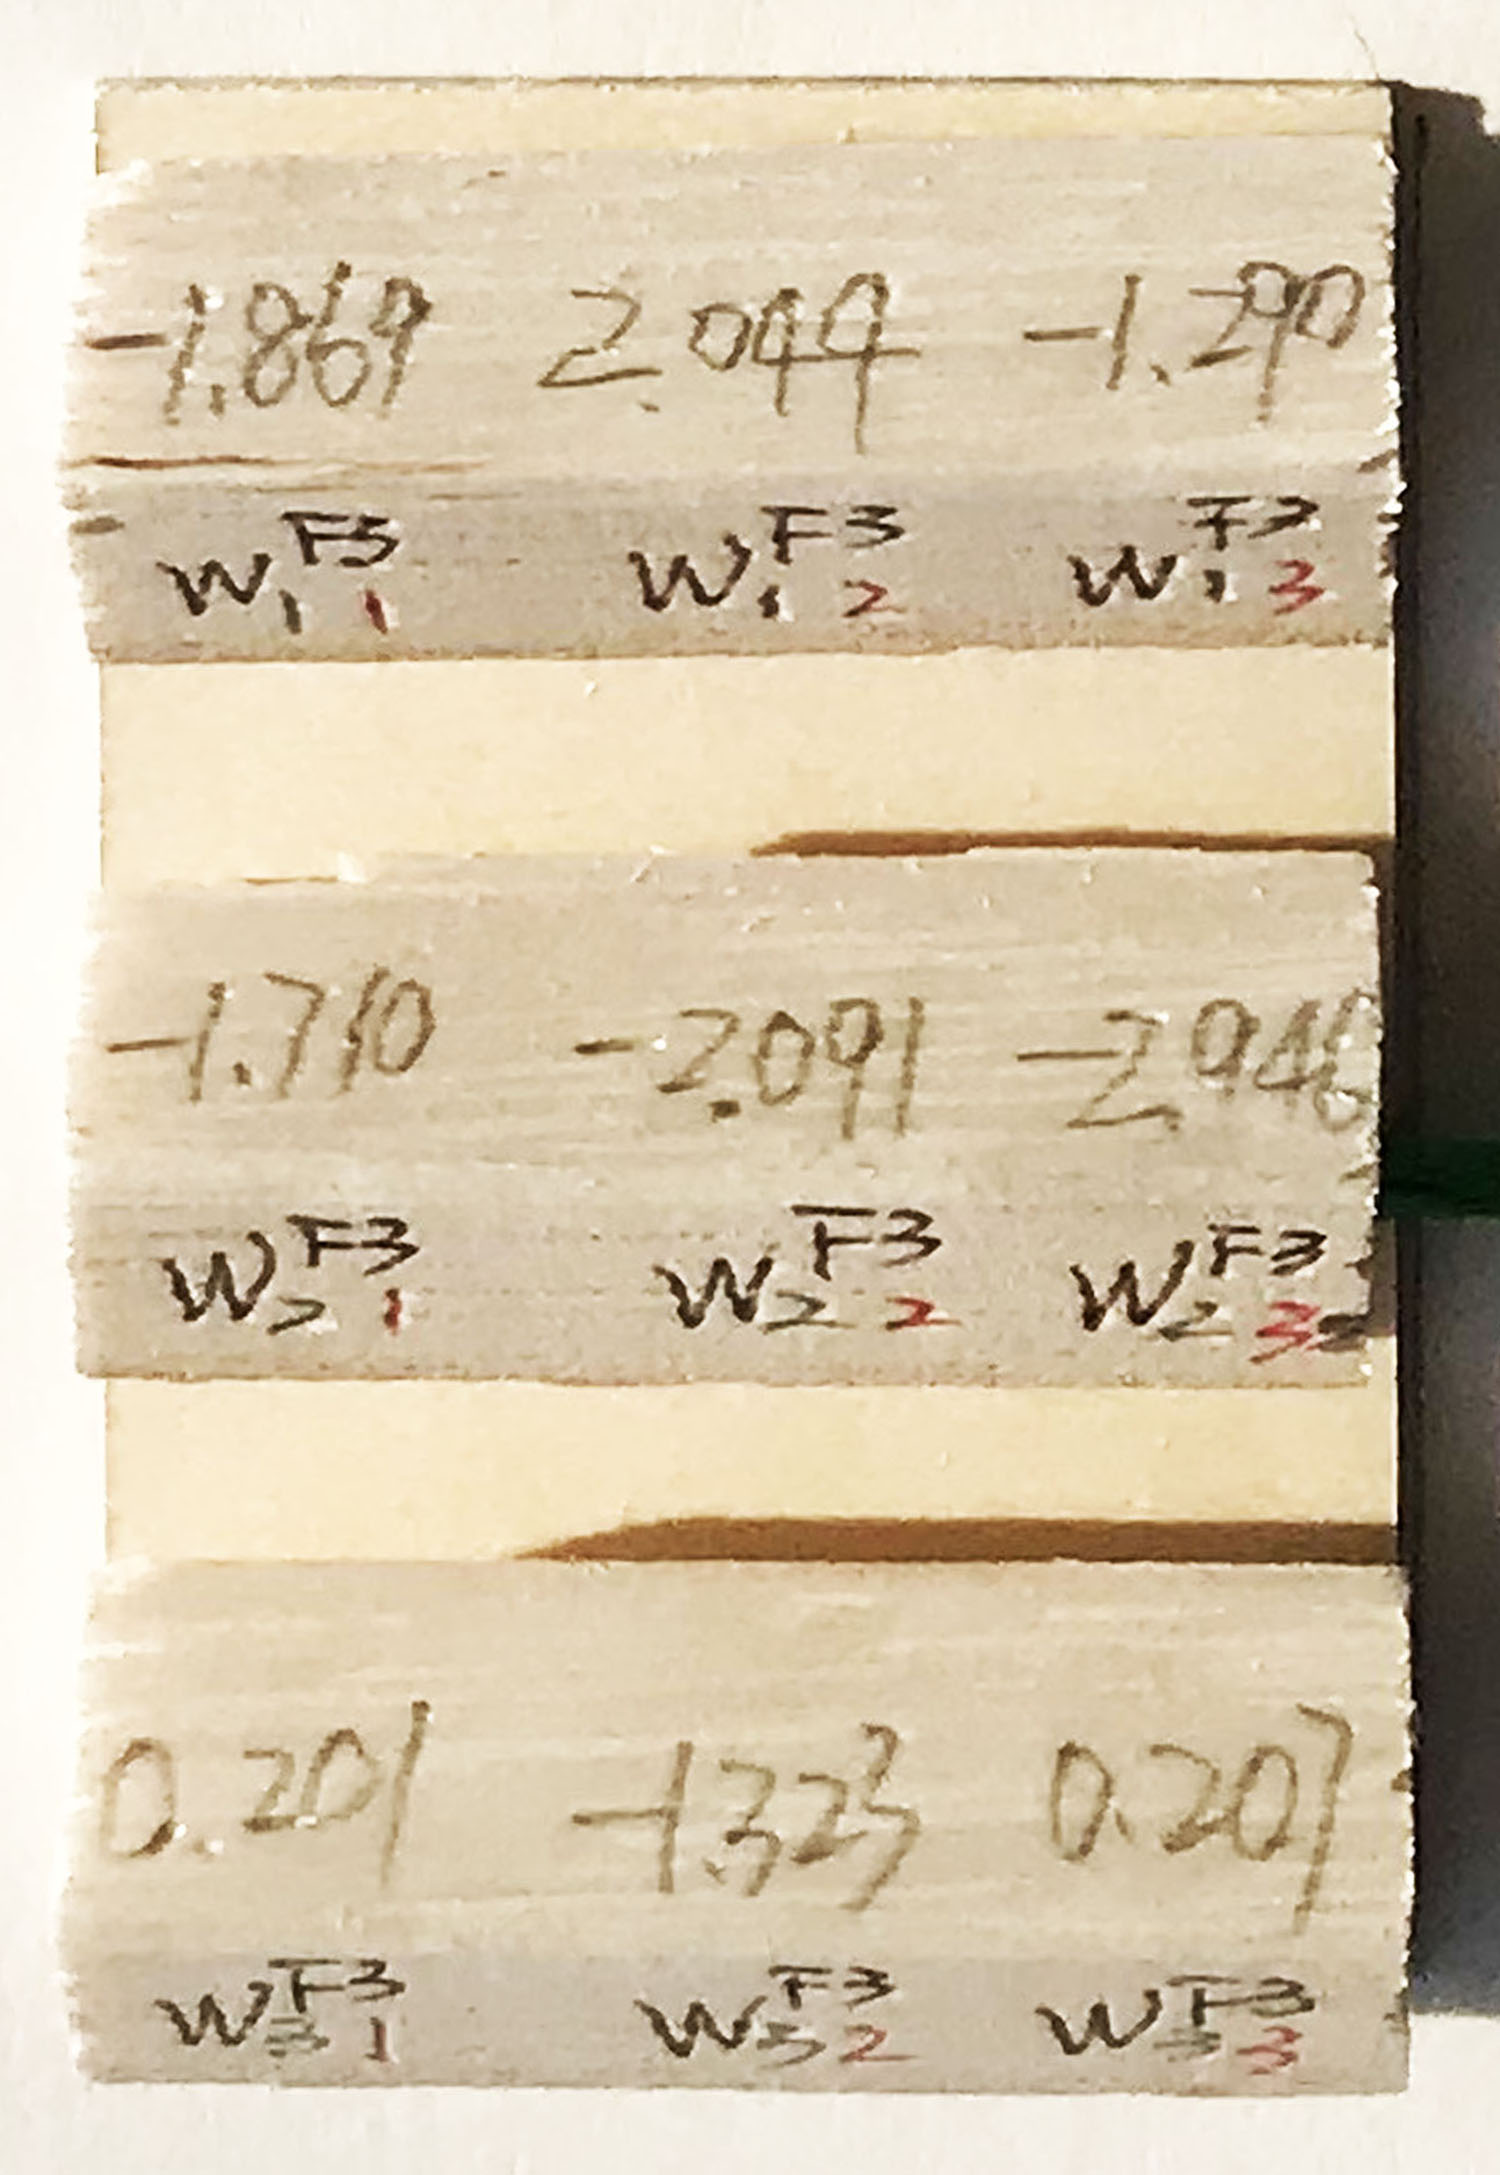 -1.869 2.044 -1.290
W₁₁F3 W₁₂F3 W₁₃F3
-1.710 -2.091 -2.946
W₂₁F3 W₂₂F3 W₂₃F3
0.201 -1.323 0.207
W₃₁F3 W₃₂F3 W₃₃F3